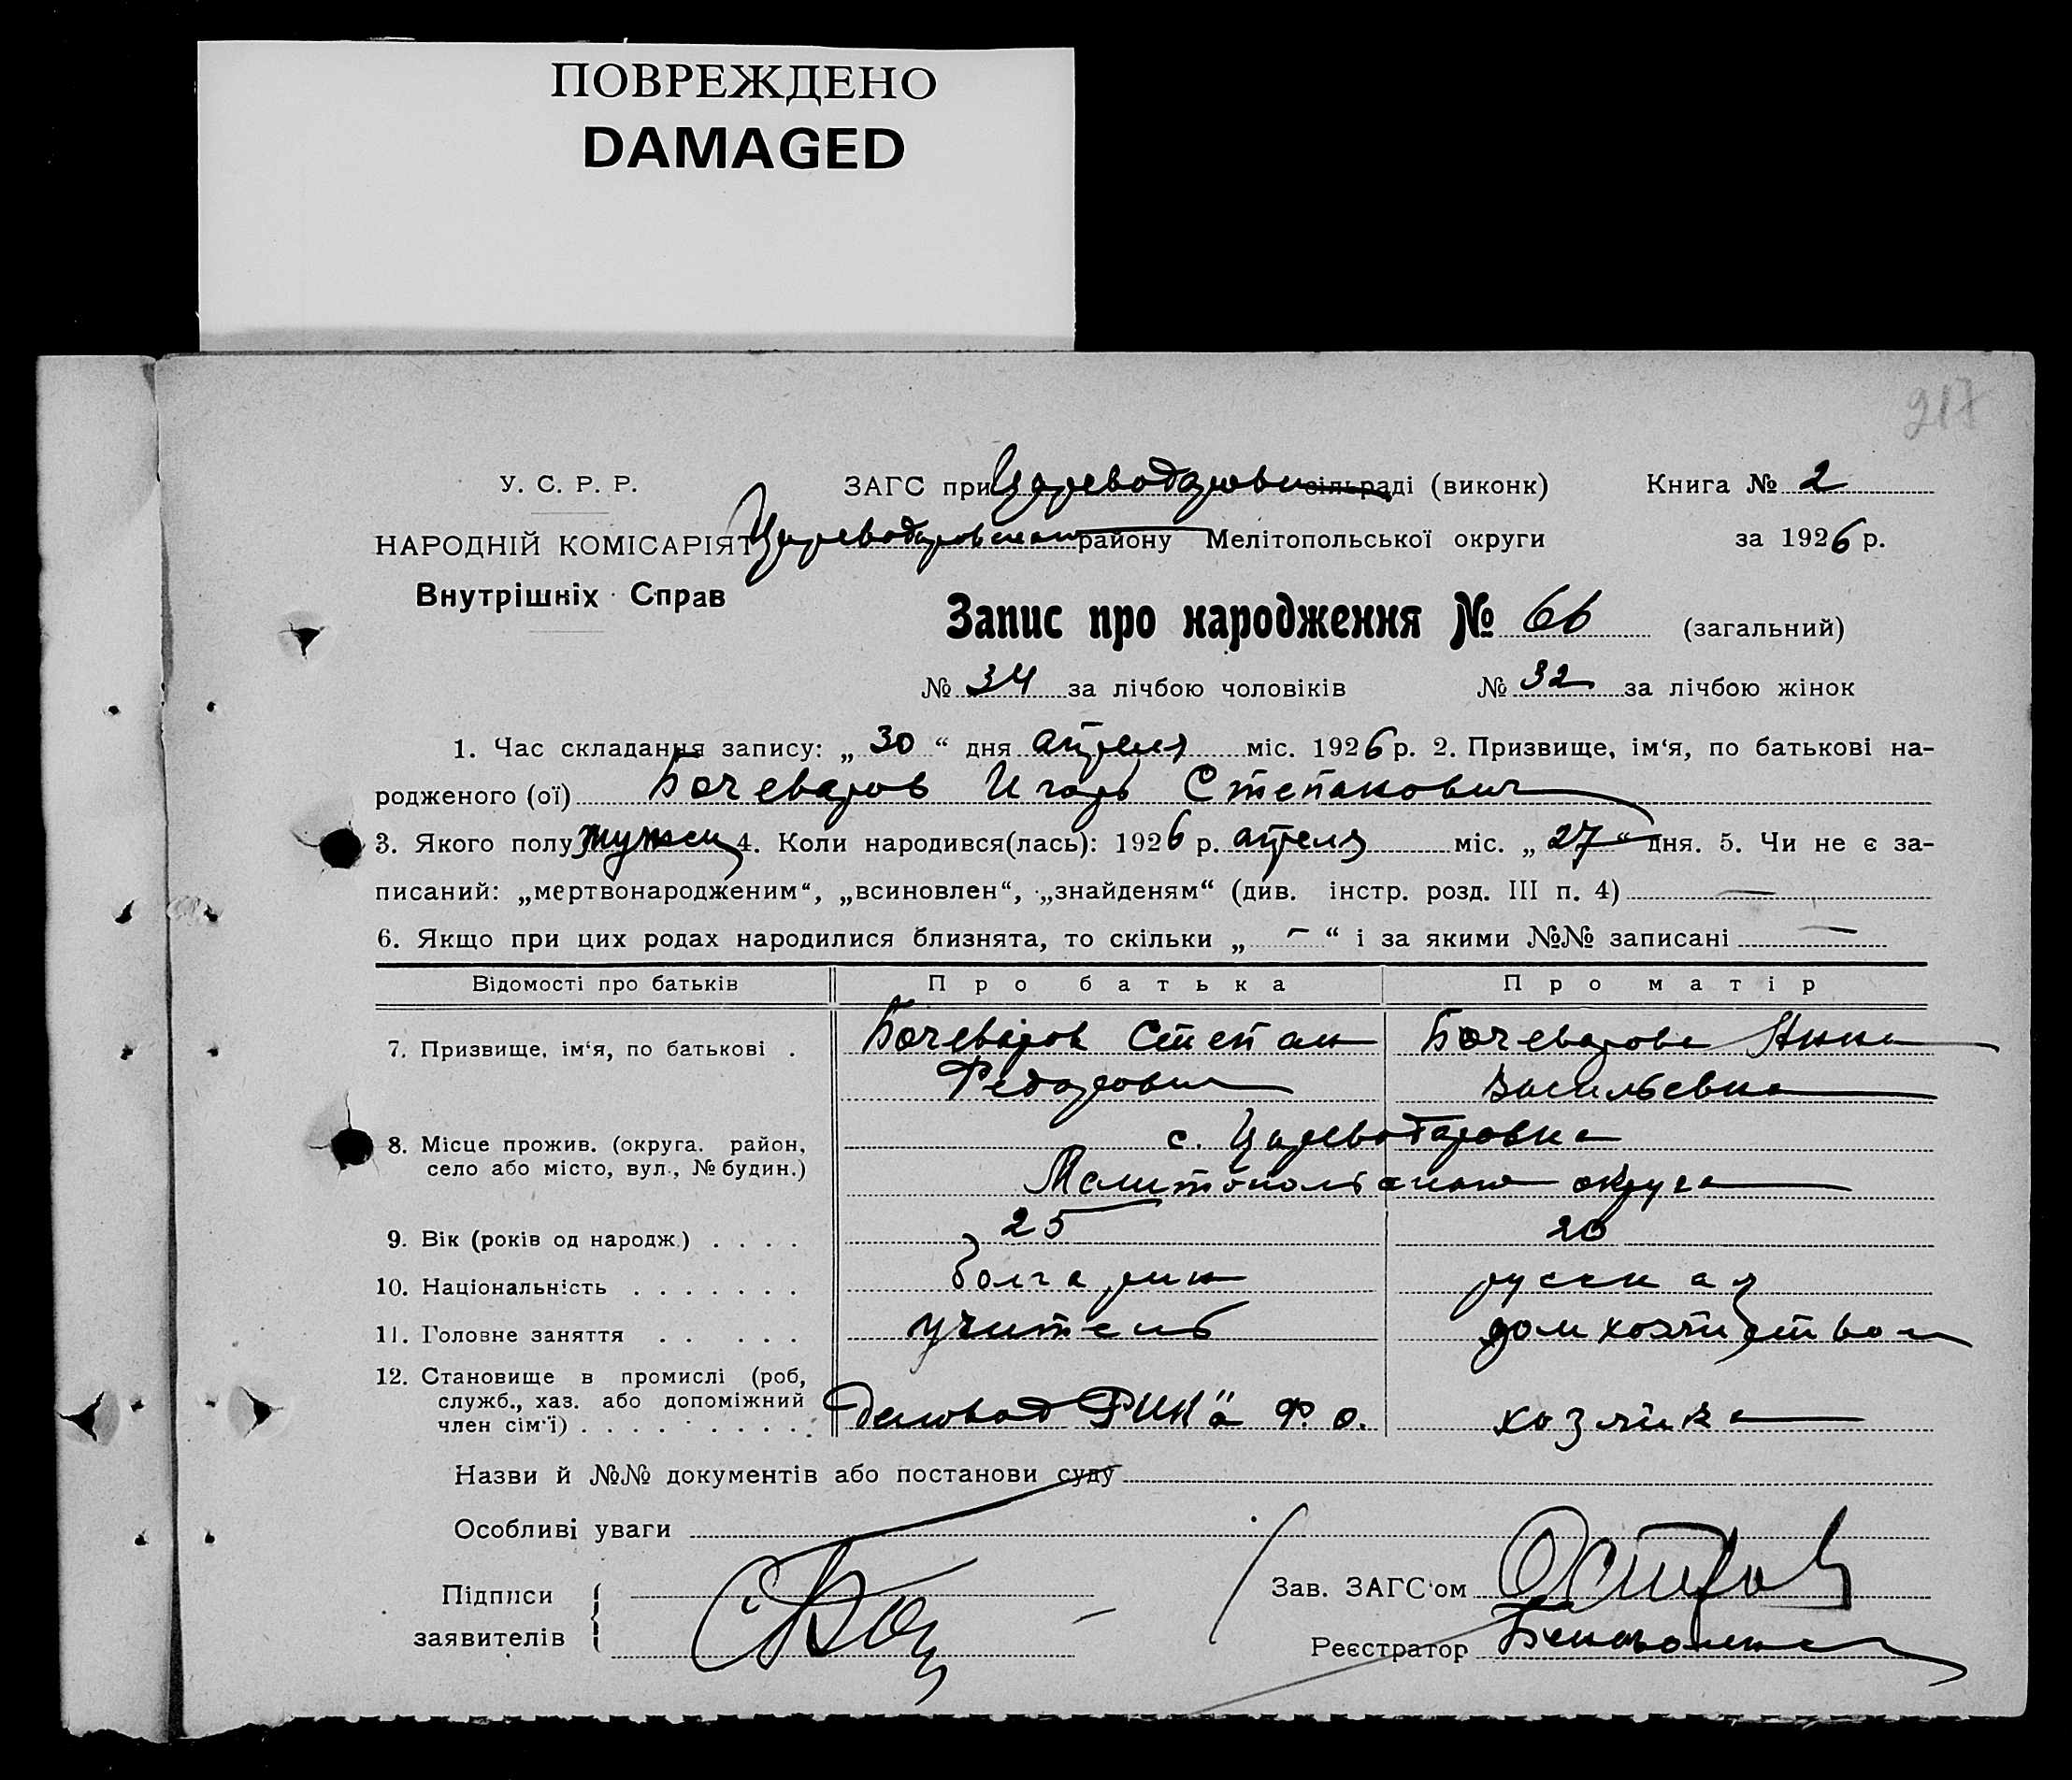 ПОВРЕЖДЕНО
DAMAGED
217
У. С. Р. Р. ЗАГС при Цареводаровск сільраді (виконк) Книга № 2
НАРОДНІЙ КОМІСАРІЯТ Цареводаровском району Мелітопольської округи за 1926 р.
Внутрішніх Справ
Запис про народження № 66 (загальний)
№ 34 за лічбою чоловіків № 32 за лічбою жінок
1. Час складання запису: „ 30 “ дня апреля міс. 1926 р. 2. Призвище, ім‘я, по батькові на-
родженого (ої) Бочеваров Игорь Степанович
3. Якого полу мужск 4. Коли народився(лась): 1926 р. апреля міс. „ 27 “ дня. 5. Чи не є за-
писаний: „мертвонародженим“, „всиновлен“, „знайденям“ (див. інстр. розд. III п. 4) —
6. Якщо при цих родах народилися близнята, то скільки „ - “ і за якими №№ записані —
Відомості про батьків Про батька Про матір
7. Призвище, ім‘я, по батькові . Бочеваров Степан Бочеварова Анна
Федорович Васильевна
8. Місце прожив. (округа. район, с. Цареводаровка
село або місто, вул., № будин.) Мелитопольского округа
9. Вік (років од народж.) . . . . 25 20
10. Національність . . . . . . . болгарин русская
11. Головне заняття . . . . . учитель домхозяйством
12. Становище в промислі (роб,
служб., хаз. або допоміжний РИК"а Ф. о. хозяйка
член сім‘ї) . . . . . . . . . .
Назви й №№ документів або постанови суду
Особливі уваги
Підписи Зав. ЗАГС‘ом
заявителів Реєстратор